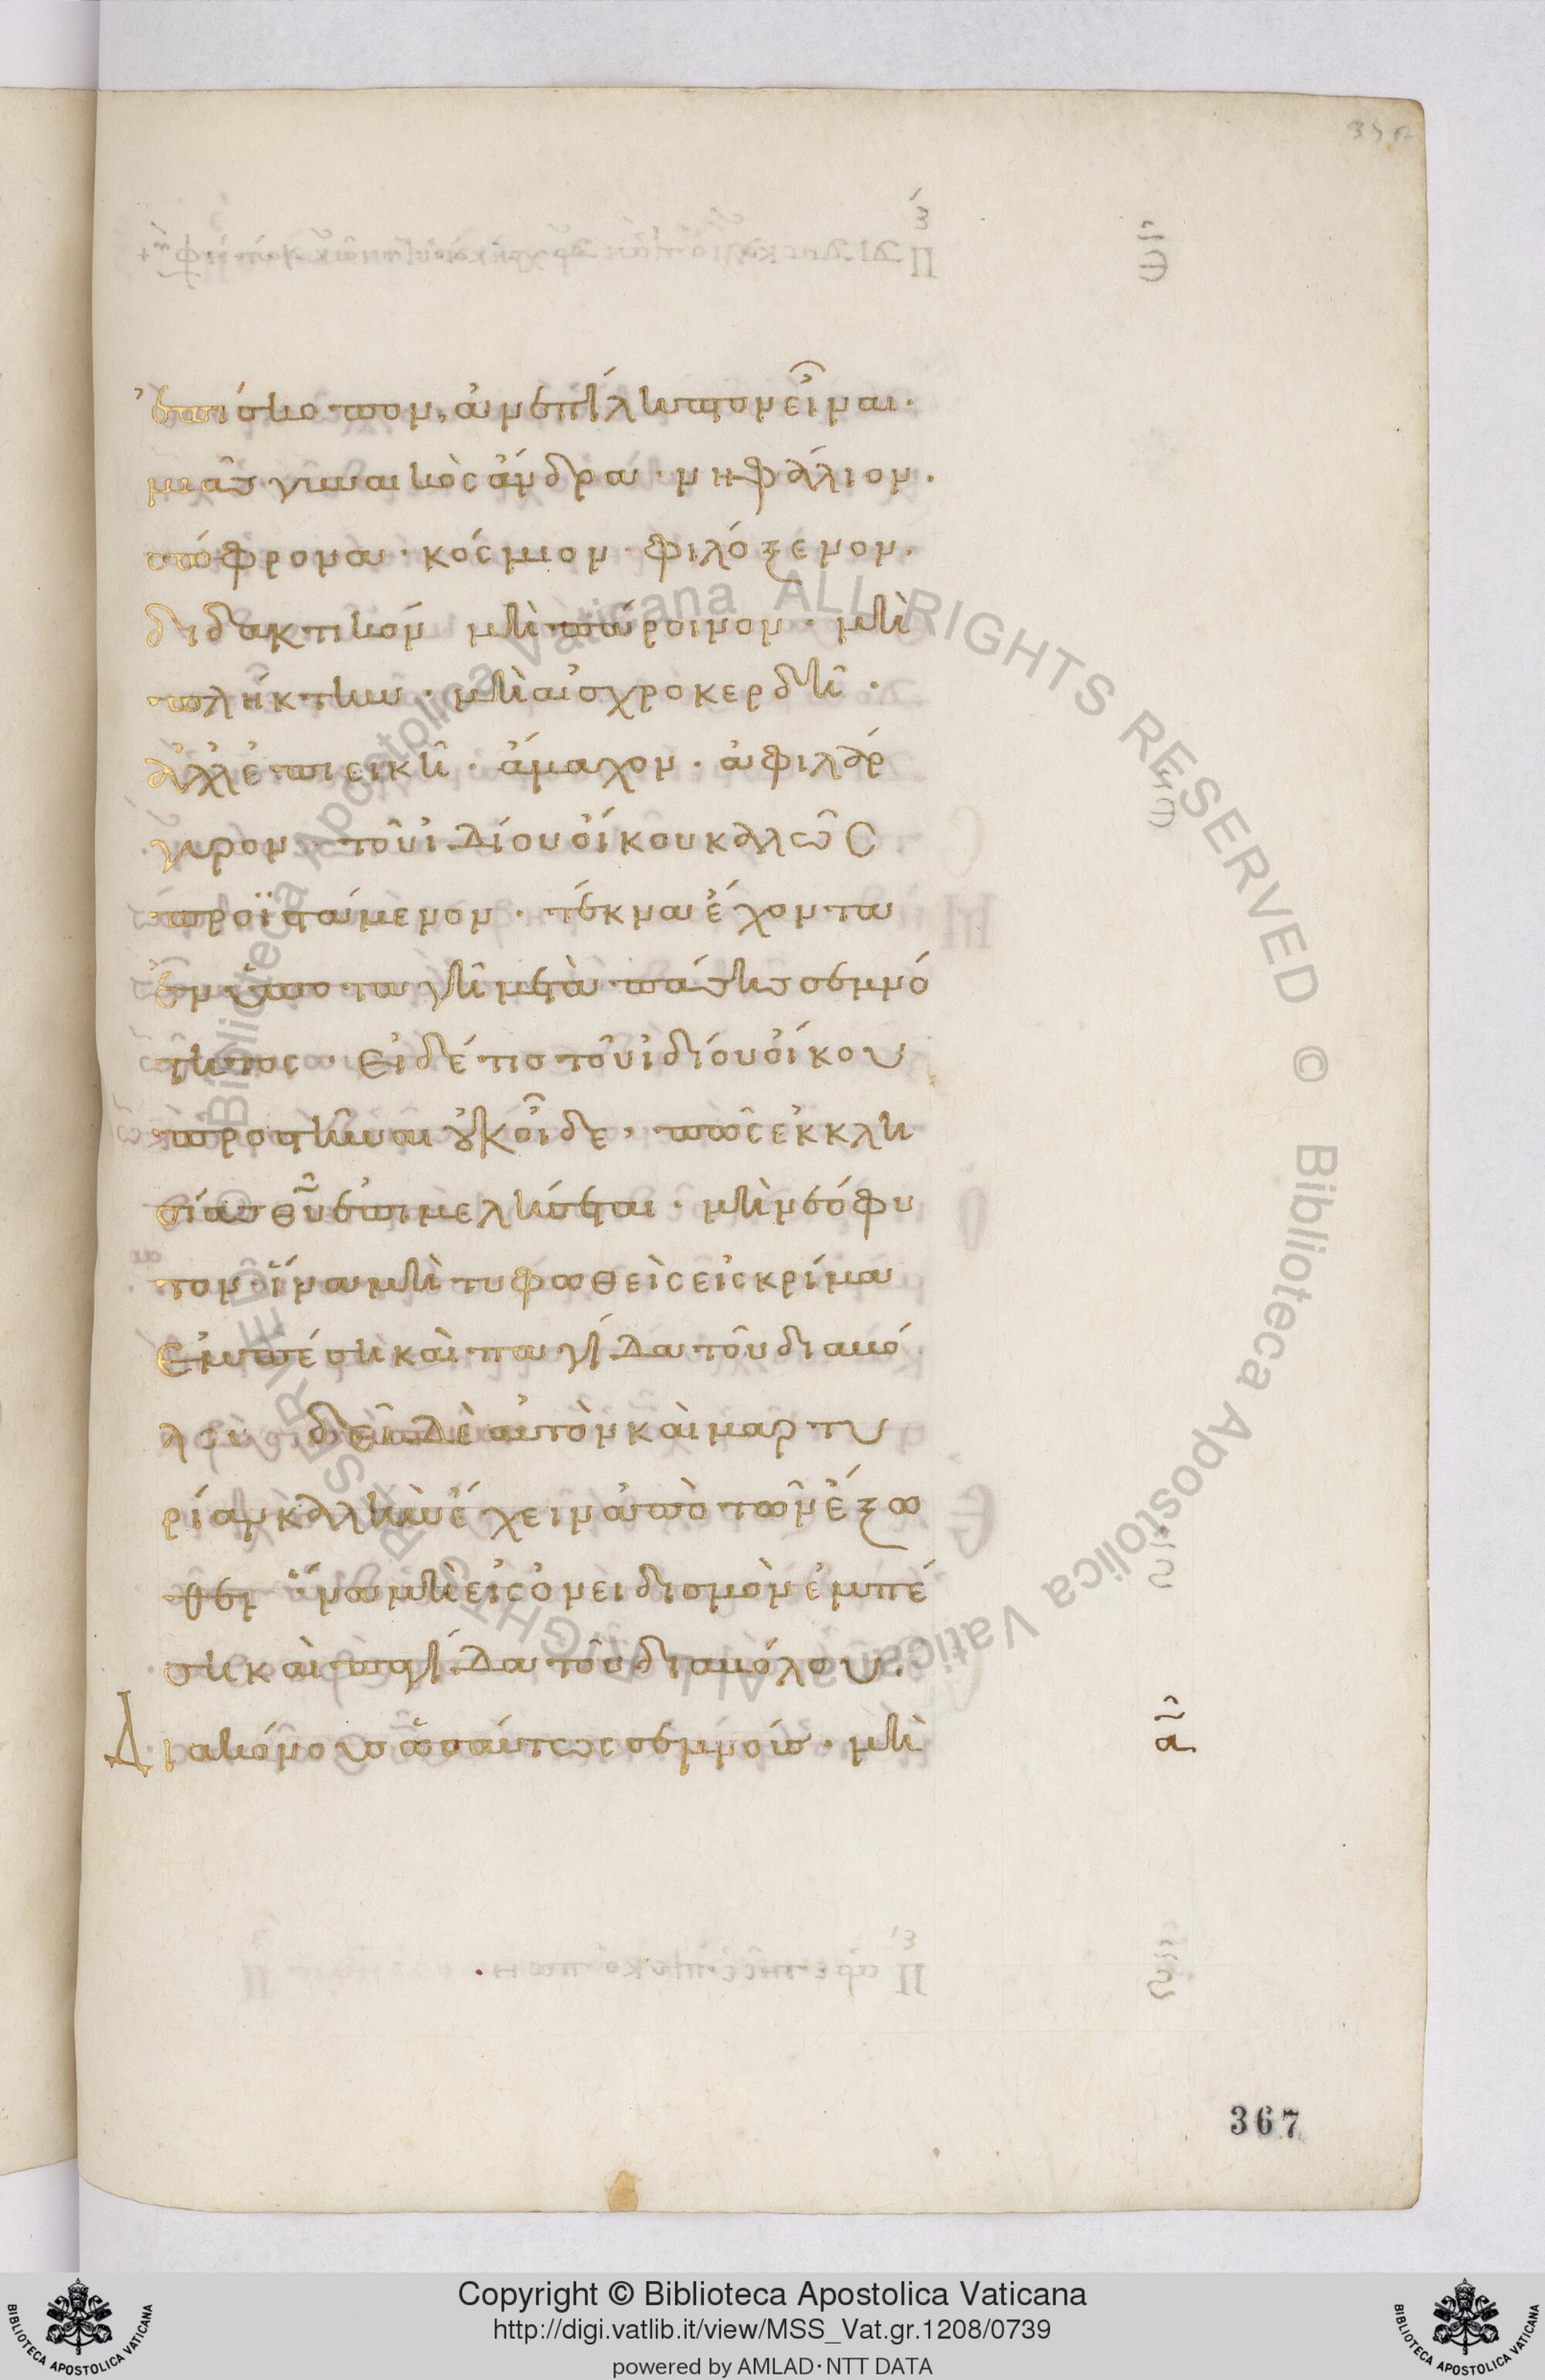 ἐπίσκοπον, ἀνεπίληπτον εἶναι·
μιᾶς γυναικὸς ἄνδρα· νηφάλιον·
σώφρονα· κόσμιον· φιλόξενον·
διδακτικόν μὴ πάροινον· μὴ
πλήκτην· μὴ αἰσχροκερδῆ·
ἀλλ' ἐπιεικῆ· ἄμαχον· ἀφιλάρ
γυρον· τοῦ ἰδίου οἴκου καλῶς
προϊστάμενον· τέκνα ἔχοντα
ἐν ὑποταγῆ μετὰ πάσης σεμνό
τητος· εἰ δέ τις τοῦ ἰδίου οἴκου
προστῆναι οὐκ οἶδε, πῶς ἐκκλη
σίας θῦ ἐπιμελήσεται· μὴ νεόφυ
τον· ἵνα μὴ τυφωθεὶς εἰς κρίμα
ἐμπέση καὶ παγίδα τοῦ διαβό
λου δεῖ δὲ αὐτὸν καὶ μαρτυ
ρίαν καλὴν ἔχειν ἀπὸ τῶν ἔξω
θεν ἵνα μὴ εἰς ὀνειδισμὸν ἐμπέ
ση καὶ παγίδα τοῦ διαβόλου.
Διακόνους ὡσαύτως σεμνούς· μὴ
α
367
Copyright © Biblioteca Apostolica Vaticana
http://digi.vatlib.it/view/MSS_Vat.gr.1208/0739
powered by AMLAD·NTT DATA
BIBLIOTECA APOSTOLICA VATICANA
BIBLIOTECA APOSTOLICA VATICANA
© Biblioteca Apostolica Vaticana ALL RIGHTS RESERVED © Biblioteca Apostolica Vaticana ALL RIGHTS RESERVED